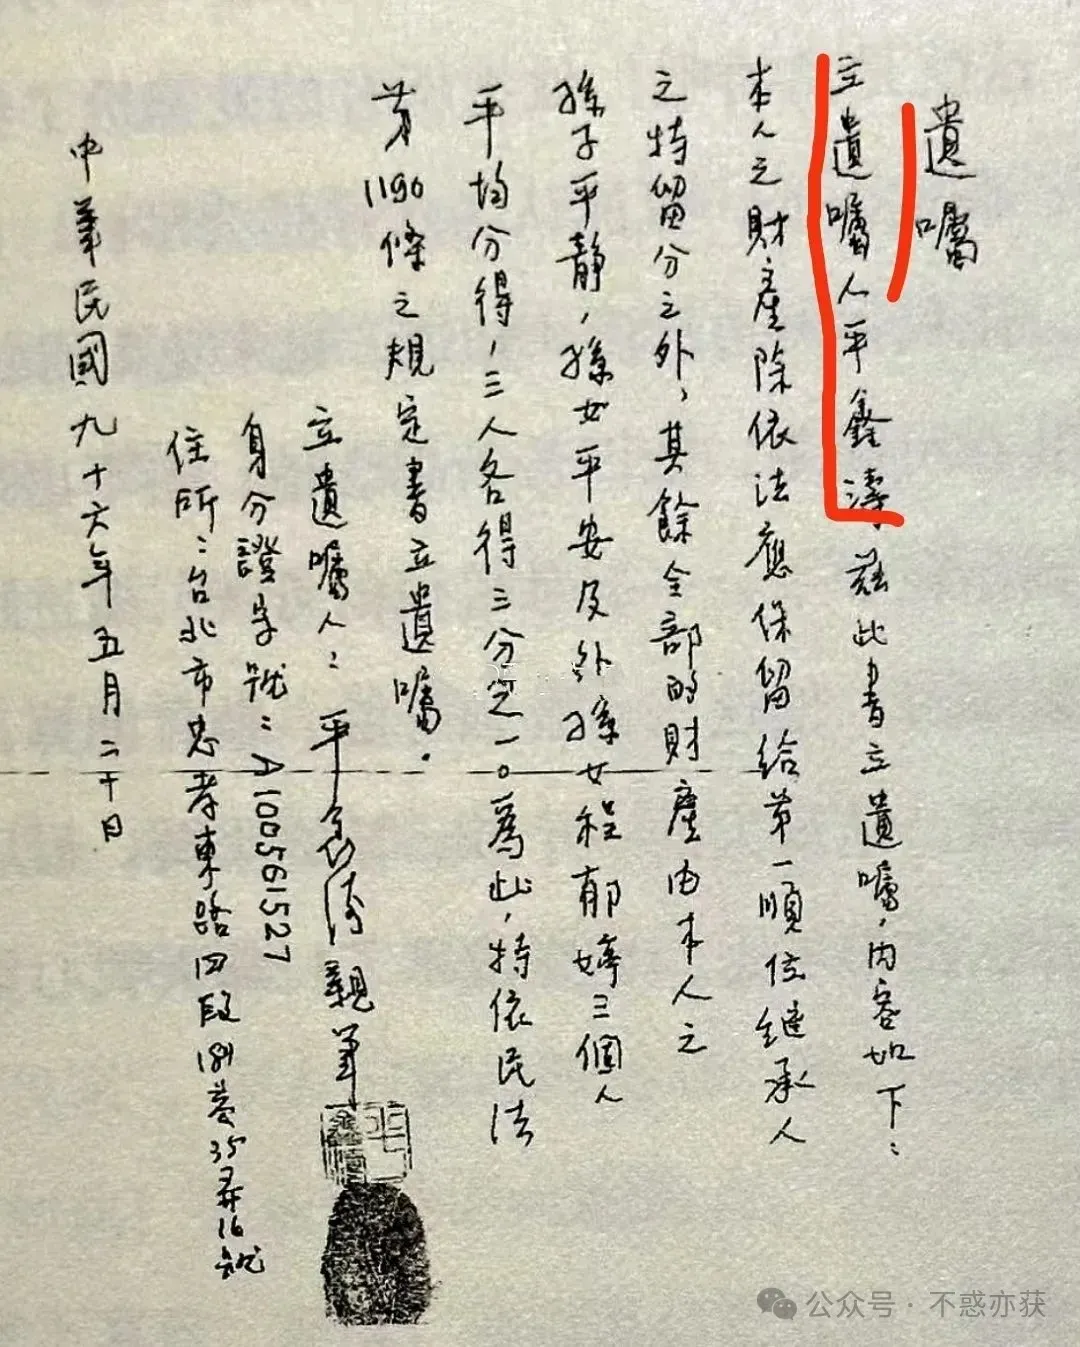 遺囑
立遺囑人平鑫濤茲此書立遺囑，內容如下：
本人之財產除依法應保留給第一順位繼承人
之特留分之外，其餘全部的財產由本人之
孫子平靜，孫女平安及外孫女程郁婷三個人
平均分得，三人各得三分之一。為此，特依民法
第1190條之規定書立遺囑。
立遺囑人：平鑫濤親筆
身分證字號：A100561527
住所：台北市忠孝東路四段181巷35弄16號
中華民國九十六年五月二十日
公众号·不惑亦获